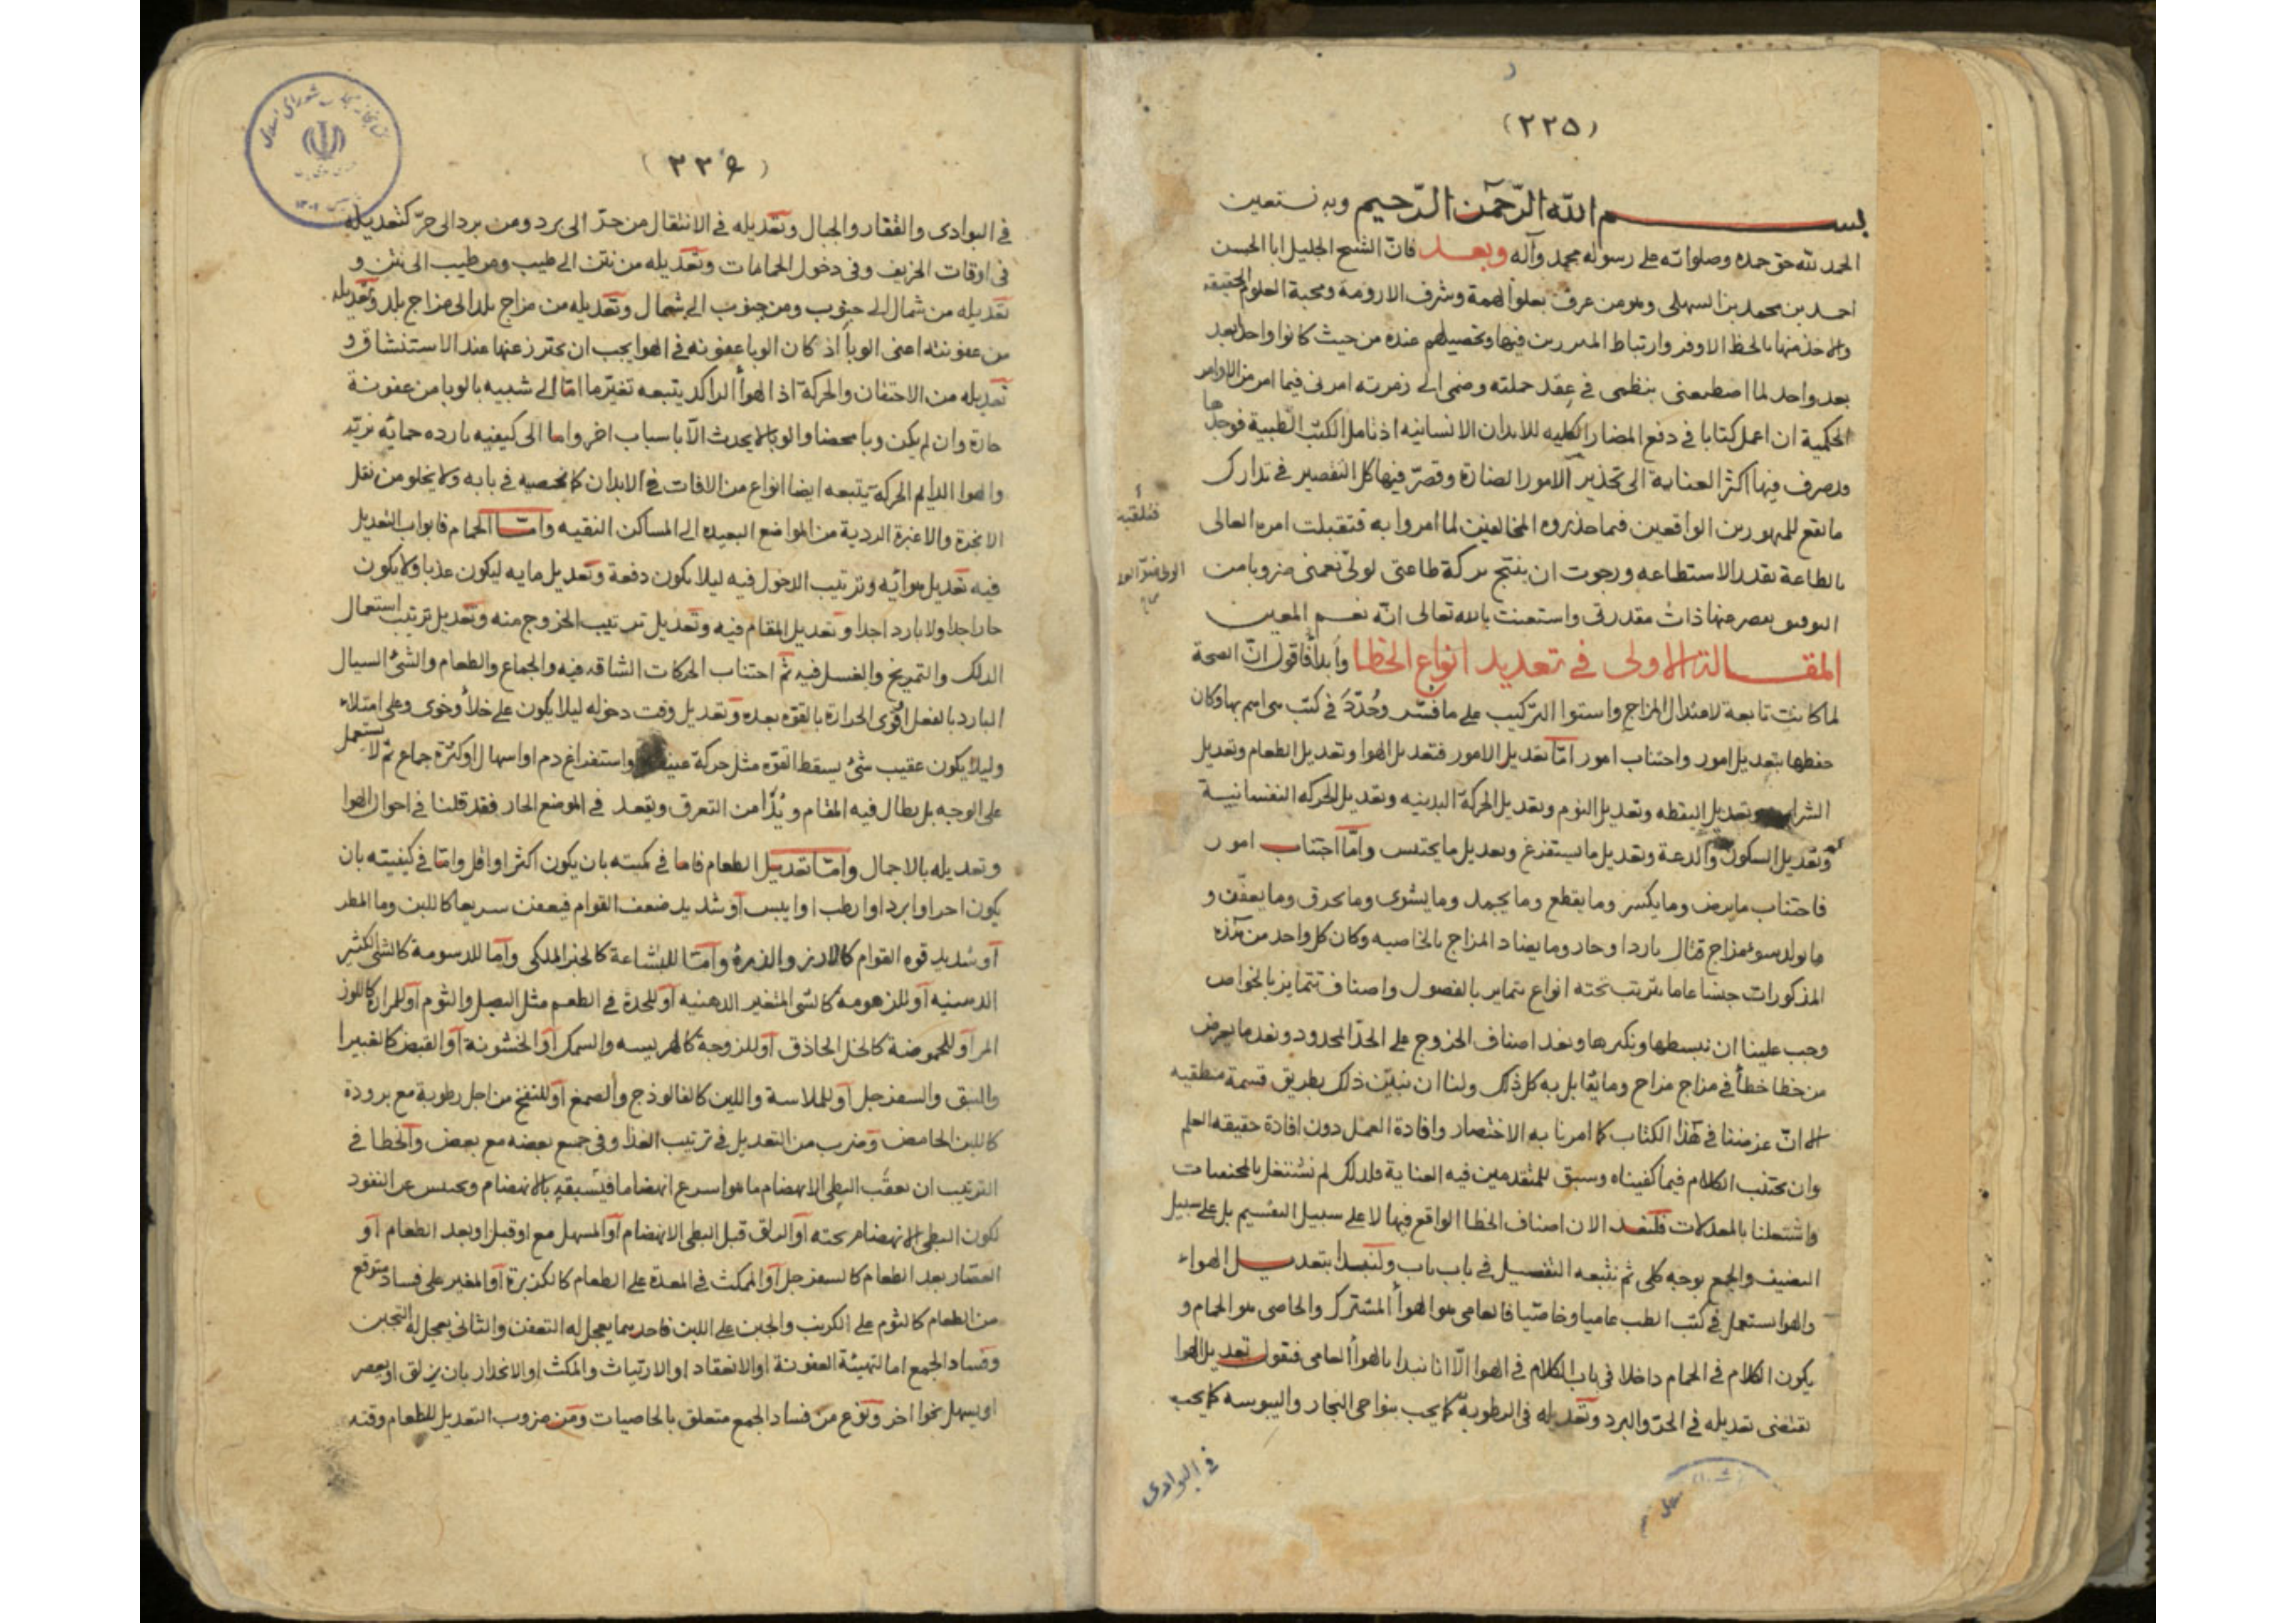 (٢٢٥)
بسم الله الرّحمن الرّحيم وبه نستعين
الحمد لله حق حمده وصلواته على رسوله محمد وآله وبعد فانّ الشيخ الجليل ابا الحسن
احمد بن محمد بن السهلى وهو من عرف بعلو الهمة وشرف الارومة ومحبة العلوم الحقيقة
والاخذ منها بالحظ الاوفر وارتباط المبررين فيها وتحصيلهم عنده من حيث كانوا واحدا بعد
بعد واحد لما اصطنعنى بنظمى فى عقد حملته وضمى الى زمرته امرنى فيما امر من الاوامر
الحكمية ان اعمل كتابا فى دفع المضار الكلية للابدان الانسانيه اذ تامل الكتب الطبية فوجدها
قد صرف فيها اكثر العناية الى تحذير الامور الضارة وقصّر فيها كل التقصير فى تدارك
ما يقع للمتهورين الواقعين فيما حذروه المخالفين لما امروا به فتقبلت امره العالى
فتلقيت
بالطاعة بقدر الاستطاعه ورجوت ان ينتج بركة طاعتى لولىّ نعمتى ضروبا من
التوفيق يصر عنها ذات مقدرتى واستعنت بالله تعالى انّه نعم المعين
المقالة الاولى فى تعديد انواع الخطا وأبدأ فاقول انّ الصحة
لما كانت تابعة لاعتدال المزاج واستوا التركيب على ما فسّر وحُدّد فى كتب هى اسم بها وكان
حفظها بتعديل امور واجتناب امور امّا تعديل الامور فتعديل الهوا وتعديل الطعام وتعديل
الشراب وتعديل اليقظه وتعديل النوم وتعديل الحركة البدنيه وتعديل الحركه النفسانيية
وتعديل السكون والدعة وتعديل ما يستفرغ وتعديل ما يحتبس وامّا اجتناب امور
فاجتناب ما يرض وما يكسر وما يقطع وما يجمد وما يشوى وما يحرق وما يعفّن و
ما يولد سوء مزاج قتال باردا وحار وما يضاد المزاج بالخاصيه وكان كل واحد من هذه
المذكورات جنسا عاما يترتب تحته انواع يتمايز بالفصول واصناف تتمايز بالخواص
وجب علينا ان نبسطها ونكثرها ونعد اصناف الخروج على الحدّ المحدود ونعد ما يعرض
من خطا خطأ فى مزاج مزاج وما يقابل به كل ذلك ولنا ان نبيّن ذلك بطريق قسمة منطقيه
الا انّ غرضنا فى هذا الكتاب كما امرنا به الاختصار وافادة العمل دون افادة حقيقه العلم
وان نجتنب الكلام فيما كفيناه وسبق للمتقدمين فيه العناية فلذلك لم نشتغل بالمجتنبات
واشتغلنا بالمعدلات فلنعد الان اصناف الخطا الواقع فيها لا على سبيل التقسيم بل على سبيل
التصنيف والجمع بوجه كلى ثم نتبعه التفصيل فى باب باب ولنبدأ بتعديل الهواء
والهوا يستعمل فى كتب الطب عاميا وخاصّيا فالعامى هو الهوأ المشترك والخاصى هو الحمام و
يكون الكلام فى الحمام داخلا فى باب الكلام فى الهوا الّا انا نبدا بالهوأ العامى فنقول تعديل الهوا
يقتضى تعديله فى الحرّ والبرد وتعديله فى الرطوبة كما يجب بنواحى البحار واليبوسه كما يجب
فى البوادى
(٢٢٦)
فى البوادى والقفار والجبال وتعديله فى الانتقال من حدّ الى برد ومن برد الى حرّ كتعديله
فى اوقات الخريف وفى دخول الحمامات وتعديله من نتن الى طيب ومن طيب الى نتن و
تعديله من شمال الى جنوب ومن جنوب الى شمال وتعديله من مزاج بلد الى مزاج بلد وتعديله
من عفونته اعنى الوبأ اذ كان الوبا عفونه فى الهوا يجب ان يحترز عنها عند الاستنشاق و
تعديله من الاحتقان والحركة اذ الهوأ الراكد يتبعه تغيّر ما امّا الى شبيه بالوبا من عفونة
حارة وان لم يكن وبا محضا والوبا لا يحدث الّا باسباب اخر واما الى كيفيه بارده حمائه نزيّة
والهوا الدايم الحركة يتبعه ايضا انواع من الافات فى الابدان كما نحصيه فى بابه ولا يخلو من نقل
الابخرة والاغبرة الردية من المواضع البعيده الى المساكن النقيه وامّا الحمام فابواب التعديل
فيه تعديل هوائه وترتيب الدخول فيه ليلا يكون دفعة وتعديل مايه ليكون عذبا ولا يكون
حارا جدا ولا باردا جدا وتعديل المقام فيه وتعديل ترتيب الخروج منه وتعديل ترتيب استعمال
الدلك والتمريخ والغسل فيه ثمّ اجتناب الحركات الشاقه فيه والجماع والطعام والشئ السيال
البارد بالفعل اقوى الحرارة بالقوه بعده وتعديل وقت دخوله ليلا يكون على خلأ وخوى وعلى امتلاء
وليلا يكون عقيب شئ يسقط القوّه مثل حركة عنيفة واستفراغ دم او اسهال او كثرة جماع ثم لا يستعمل
على الوجه بل يطال فيه المقام و من التعرق ويقعد فى الموضع الحار فقد قلنا فى احوال الهوا
وتعديله بالاجمال وامّا تعديل الطعام فاما فى كميته بان يكون اكثر او اقل وامّا فى كيفيته بان
يكون احر او ابرد او ارطب او ايبس او شديد ضعف القوام فيعفن سريعا كاللبن وما المطر
او شديد قوه القوام كالارز والذرة وامّا للبشاعة كالخبز الملكى واما للدسومة كالشئ الكثير
الدسنيه او للزهومة كالشى المتغير الدهنيه او للحدة فى الطعم مثل البصل والثوم او للمرارة كاللوز
المر او للحموضة كالخل الحاذق او للزوجة كالهريسه والسمك او الخشونة او القبض كالغبيرا
والنبق والسفرجل او للملاسة واللين كالفالوذج والصمغ او للنفخ من اجل رطوبة مع برودة
كاللبن الحامض وضرب من التعديل فى ترتيب الغذا وفى جميع بعضه مع بعض والخطا فى
الترتيب ان يعقب البطى الانهضام ما هو اسرع انهضاما فيسبقه بالانهضام ويحتبس عن النفود
لكون البطى الانهضام تحته او الدلق قبل البطى الانهضام او المسهل مع او قبل او بعد الطعام او
العصّار بعد الطعام كالسفرجل او الممكث فى المعدة على الطعام كالكزبرة او المغير على فساد متوقع
من الطعام كالثوم على الكرنب والجبن على اللبن فاحدهما يعجل له التعفن والثانى يعجل له التجبن
وفساد الجمع اما لتهيئة العفونة او الانعقاد او الارتياث والمكث او الانحدار بان يزلق او يعصر
او يسهل نحوا اخر ونوع من فساد الجمع متعلق بالخاصيات ومن ضروب التعديل للطعام وقته